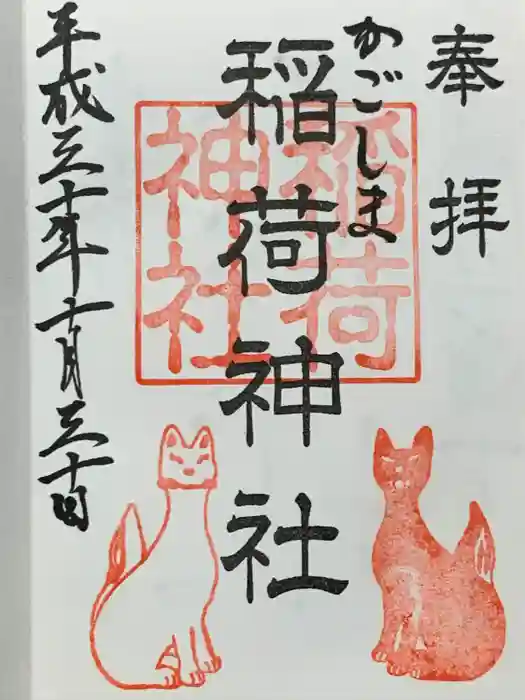 奉拝
かごしま
稲荷神社
稲荷
神社
平成三十年十月三十日